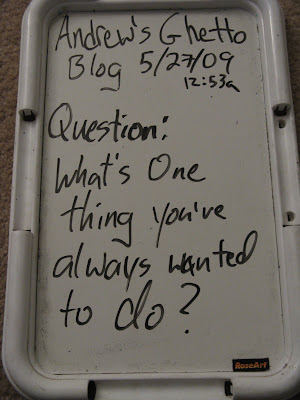 Andrew's Ghetto
Blog 5/27/09
12:53a
Question:
What's One
thing you've
always wanted
to do?
RoseArt